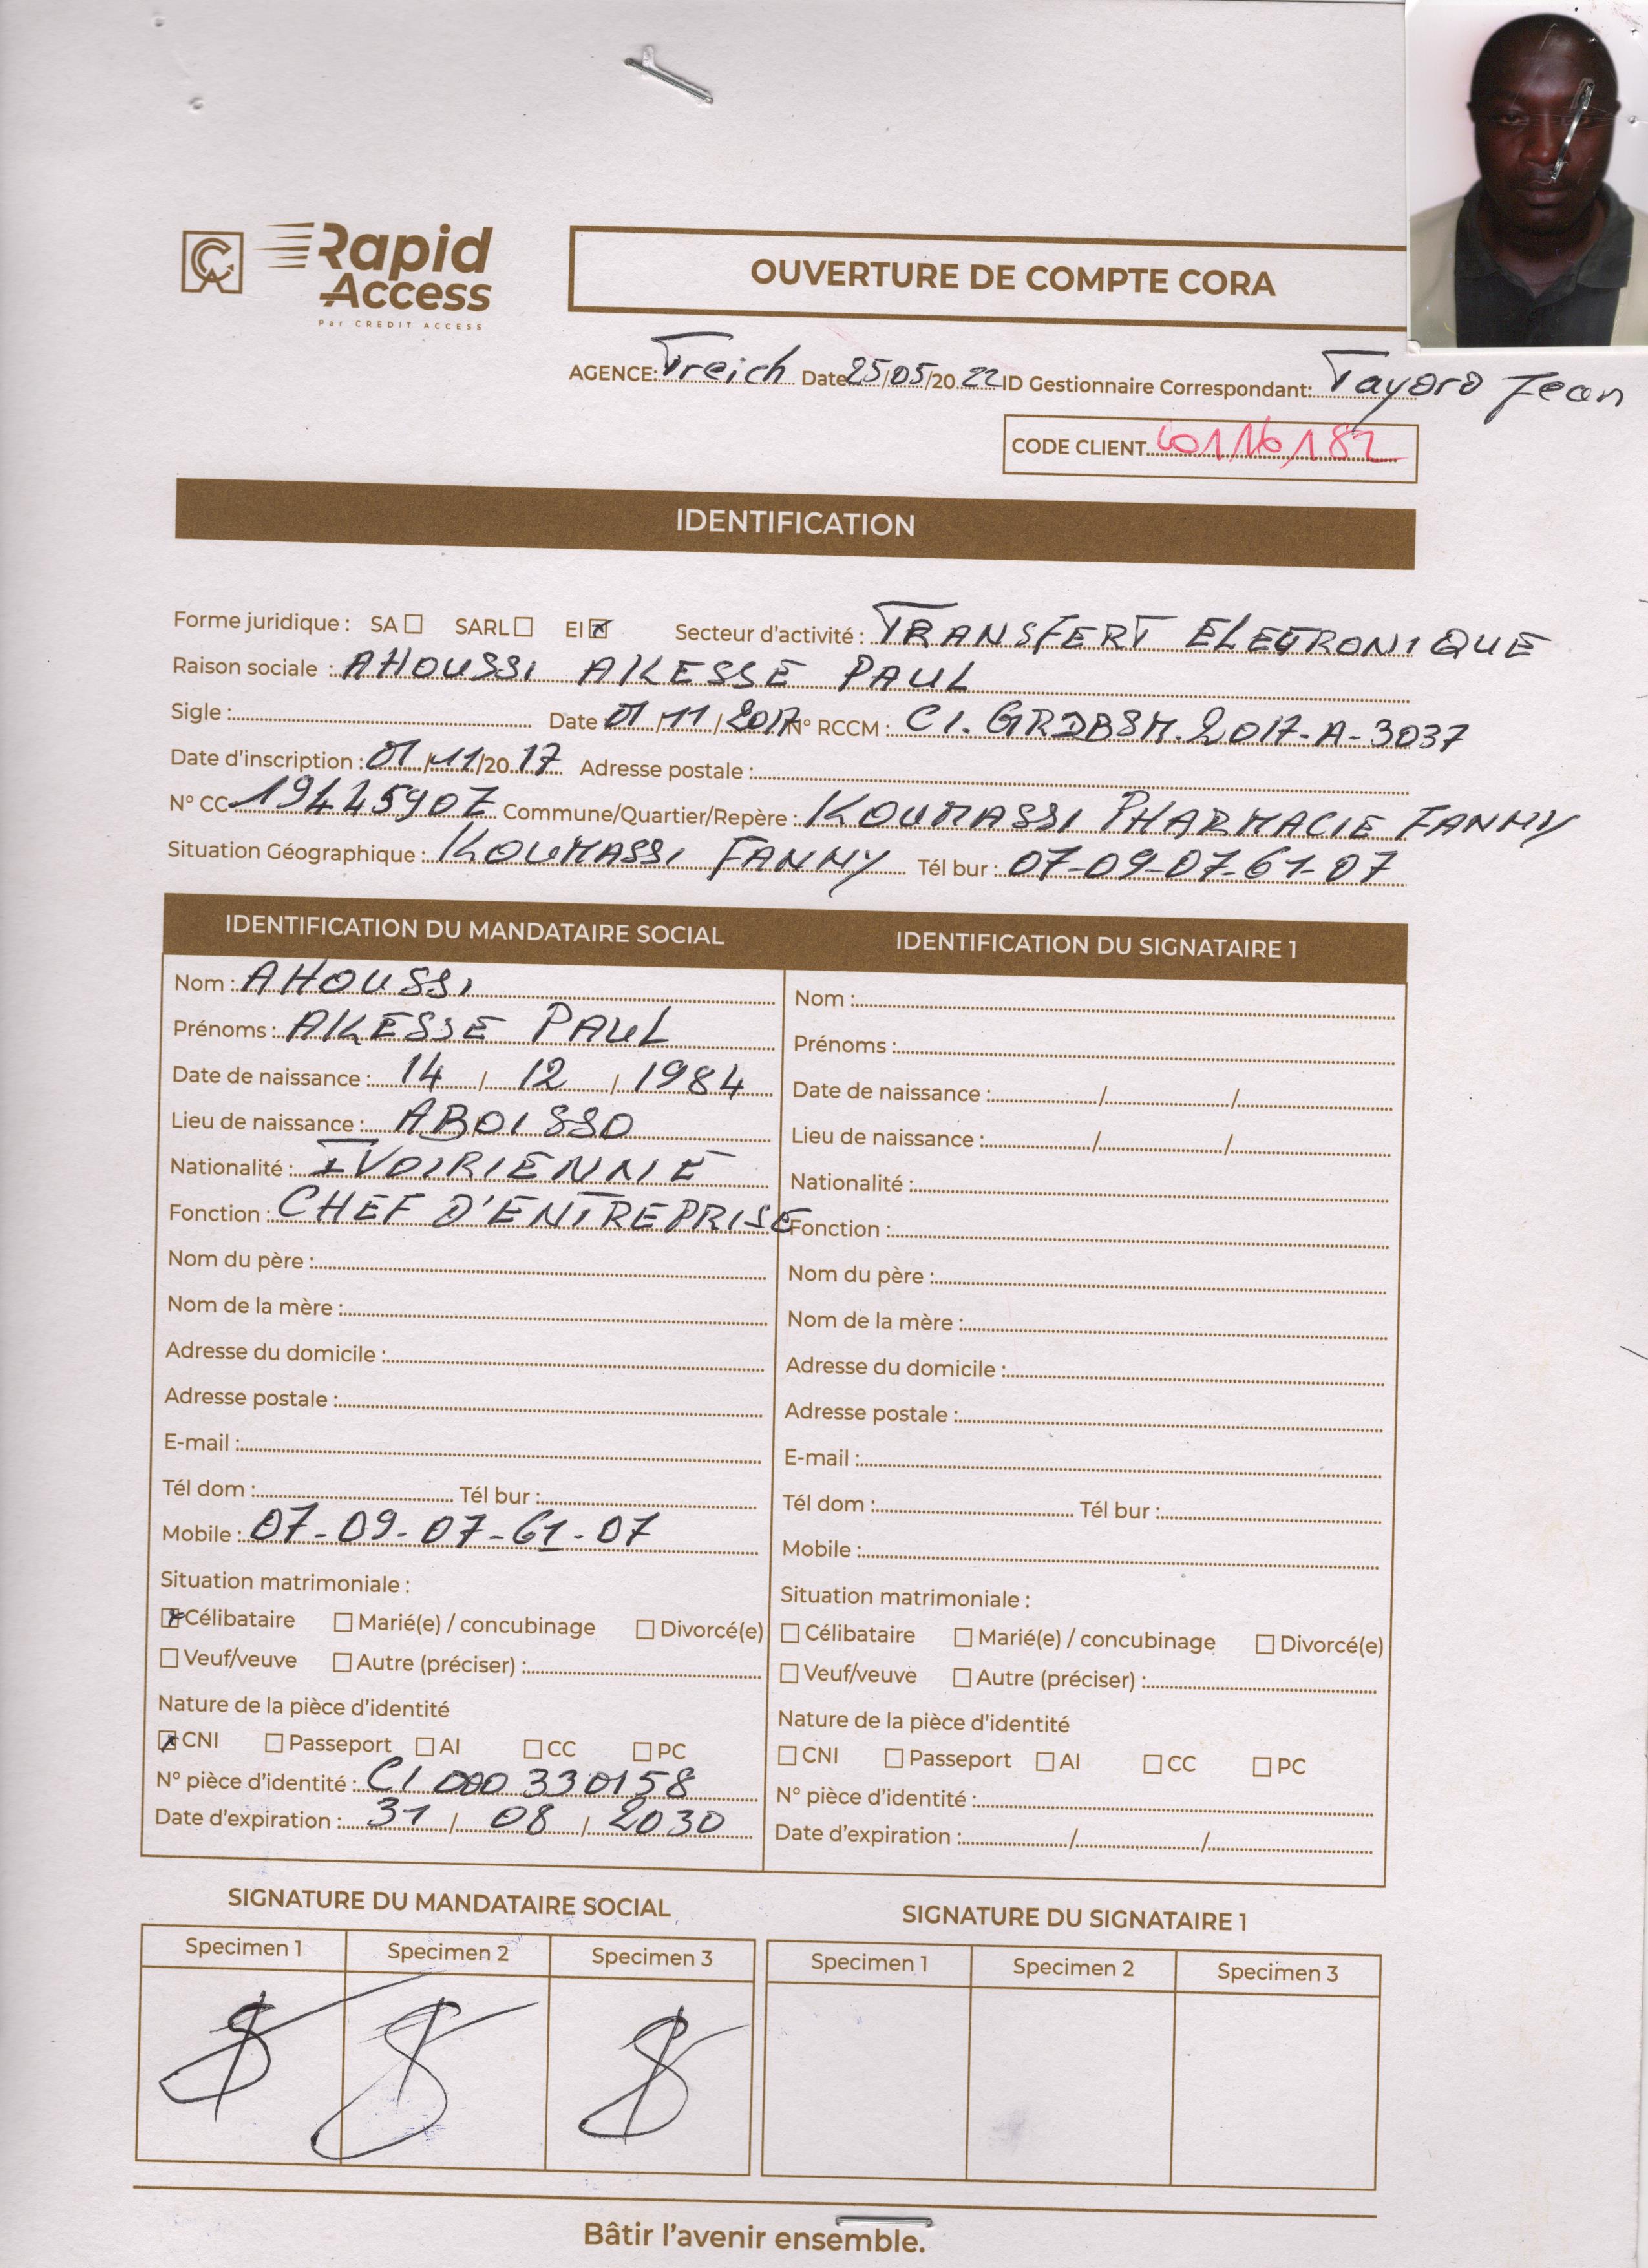 Rapid
Access
Par CREDIT ACCESS
OUVERTURE DE COMPTE CORA
AGENCE: Treich Date 25/05/20 22 ID Gestionnaire Correspondant: Tayoro Jean
CODE CLIENT
IDENTIFICATION
Forme juridique : SA ☐ SARL ☐ EI ☒ Secteur d'activité : TRANSFERT ELECTRONIQUE
Raison sociale : AHOUSSI AKESSE PAUL
Sigle : Date 01/11/2017 N° RCCM : CI.GRDBSM.2017-A-3037
Date d'inscription : 01/11/20 17 Adresse postale :
N° CC 1944590Z Commune/Quartier/Repère : KOUMASSI PHARMACIE FANNY
Situation Géographique : KOUMASSI FANNY Tél bur : 07-09-07-61-07
IDENTIFICATION DU MANDATAIRE SOCIAL
Nom : AHOUSSI
Prénoms : AKESSE PAUL
Date de naissance : 14 / 12 / 1984
Lieu de naissance : ABOISSO
Nationalité : IVOIRIENNE
Fonction : CHEF D'ENTREPRISE
Nom du père :
Nom de la mère :
Adresse du domicile :
Adresse postale :
E-mail :
Tél dom : Tél bur :
Mobile : 07-09-07-61-07
Situation matrimoniale :
☒ Célibataire ☐ Marié(e) / concubinage ☐ Divorcé(e)
☐ Veuf/veuve ☐ Autre (préciser) :
Nature de la pièce d'identité
☒ CNI ☐ Passeport ☐ AI ☐ CC ☐ PC
N° pièce d'identité : CI 000330158
Date d'expiration : 31 / 08 / 2030
IDENTIFICATION DU SIGNATAIRE 1
Nom :
Prénoms :
Date de naissance : / /
Lieu de naissance : / /
Nationalité :
Fonction :
Nom du père :
Nom de la mère :
Adresse du domicile :
Adresse postale :
E-mail :
Tél dom : Tél bur :
Mobile :
Situation matrimoniale :
☐ Célibataire ☐ Marié(e) / concubinage ☐ Divorcé(e)
☐ Veuf/veuve ☐ Autre (préciser) :
Nature de la pièce d'identité
☐ CNI ☐ Passeport ☐ AI ☐ CC ☐ PC
N° pièce d'identité :
Date d'expiration : / /
SIGNATURE DU MANDATAIRE SOCIAL
Specimen 1 Specimen 2 Specimen 3
SIGNATURE DU SIGNATAIRE 1
Specimen 1 Specimen 2 Specimen 3
Bâtir l'avenir ensemble.